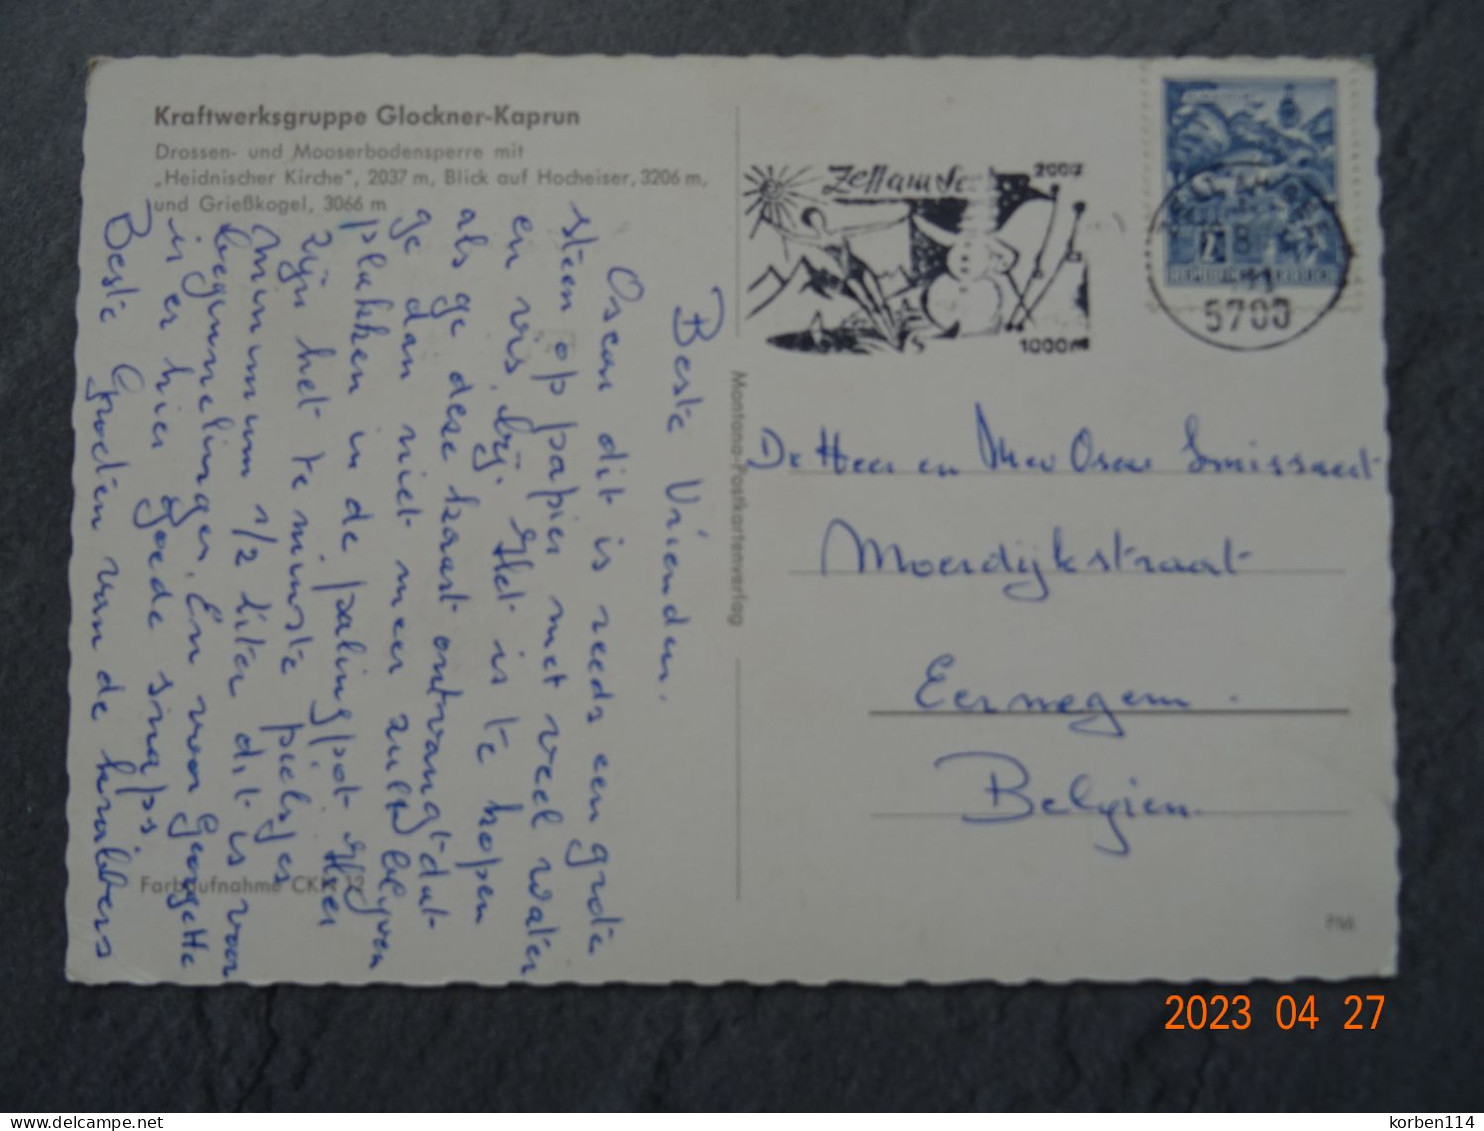 Kraftwerksgruppe Glockner-Kaprun
Drossen- und Mooserbodensperre mit
„Heidnischer Kirche", 2037 m, Blick auf Hocheiser, 3206 m,
und Grießkogel, 3066 m
Beste Vrienden.
Oscar dit is reeds een grote
steen op papier met veel water
en vis bij. Het is te hopen
als ge deze kaart ontvangt dat
ge dan niet meer zult blijven
plakken in de palingpot. Hier
zijn het te minste pintjes
minimum 1/2 liter dit is voor
beginnelingen. En voor Georgette
is er hier goede snaps.
Beste Groeten van de
Farbaufnahme CKK
Montana-Postkartenverlag
Zell am See
2000
1000m
5700
REPUBLIK ÖSTERREICH
De Heer en Mev Oscar
Moerdijkstraat
Eernegem.
Belgien.
2023 04 27
korben114